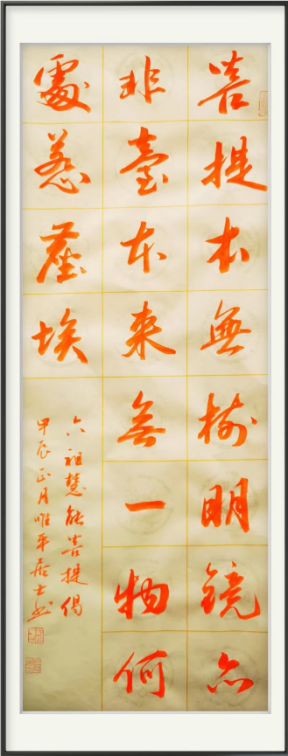 菩提本無樹明镜亦
非臺本来無一物何
處惹塵埃
六祖慧能菩提偈
甲辰正月唯平居士书